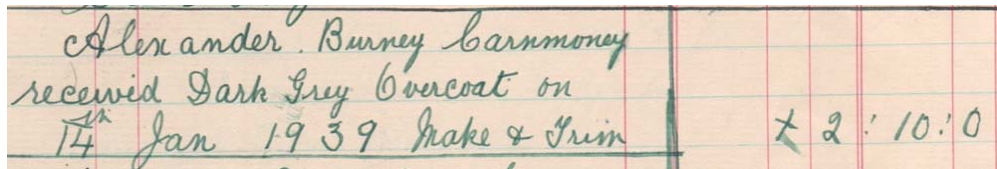 Alexander. Burney Carnmoney
received Dark Grey Overcoat on
14th Jan 1939 Make & Trim £ 2 : 10 : 0